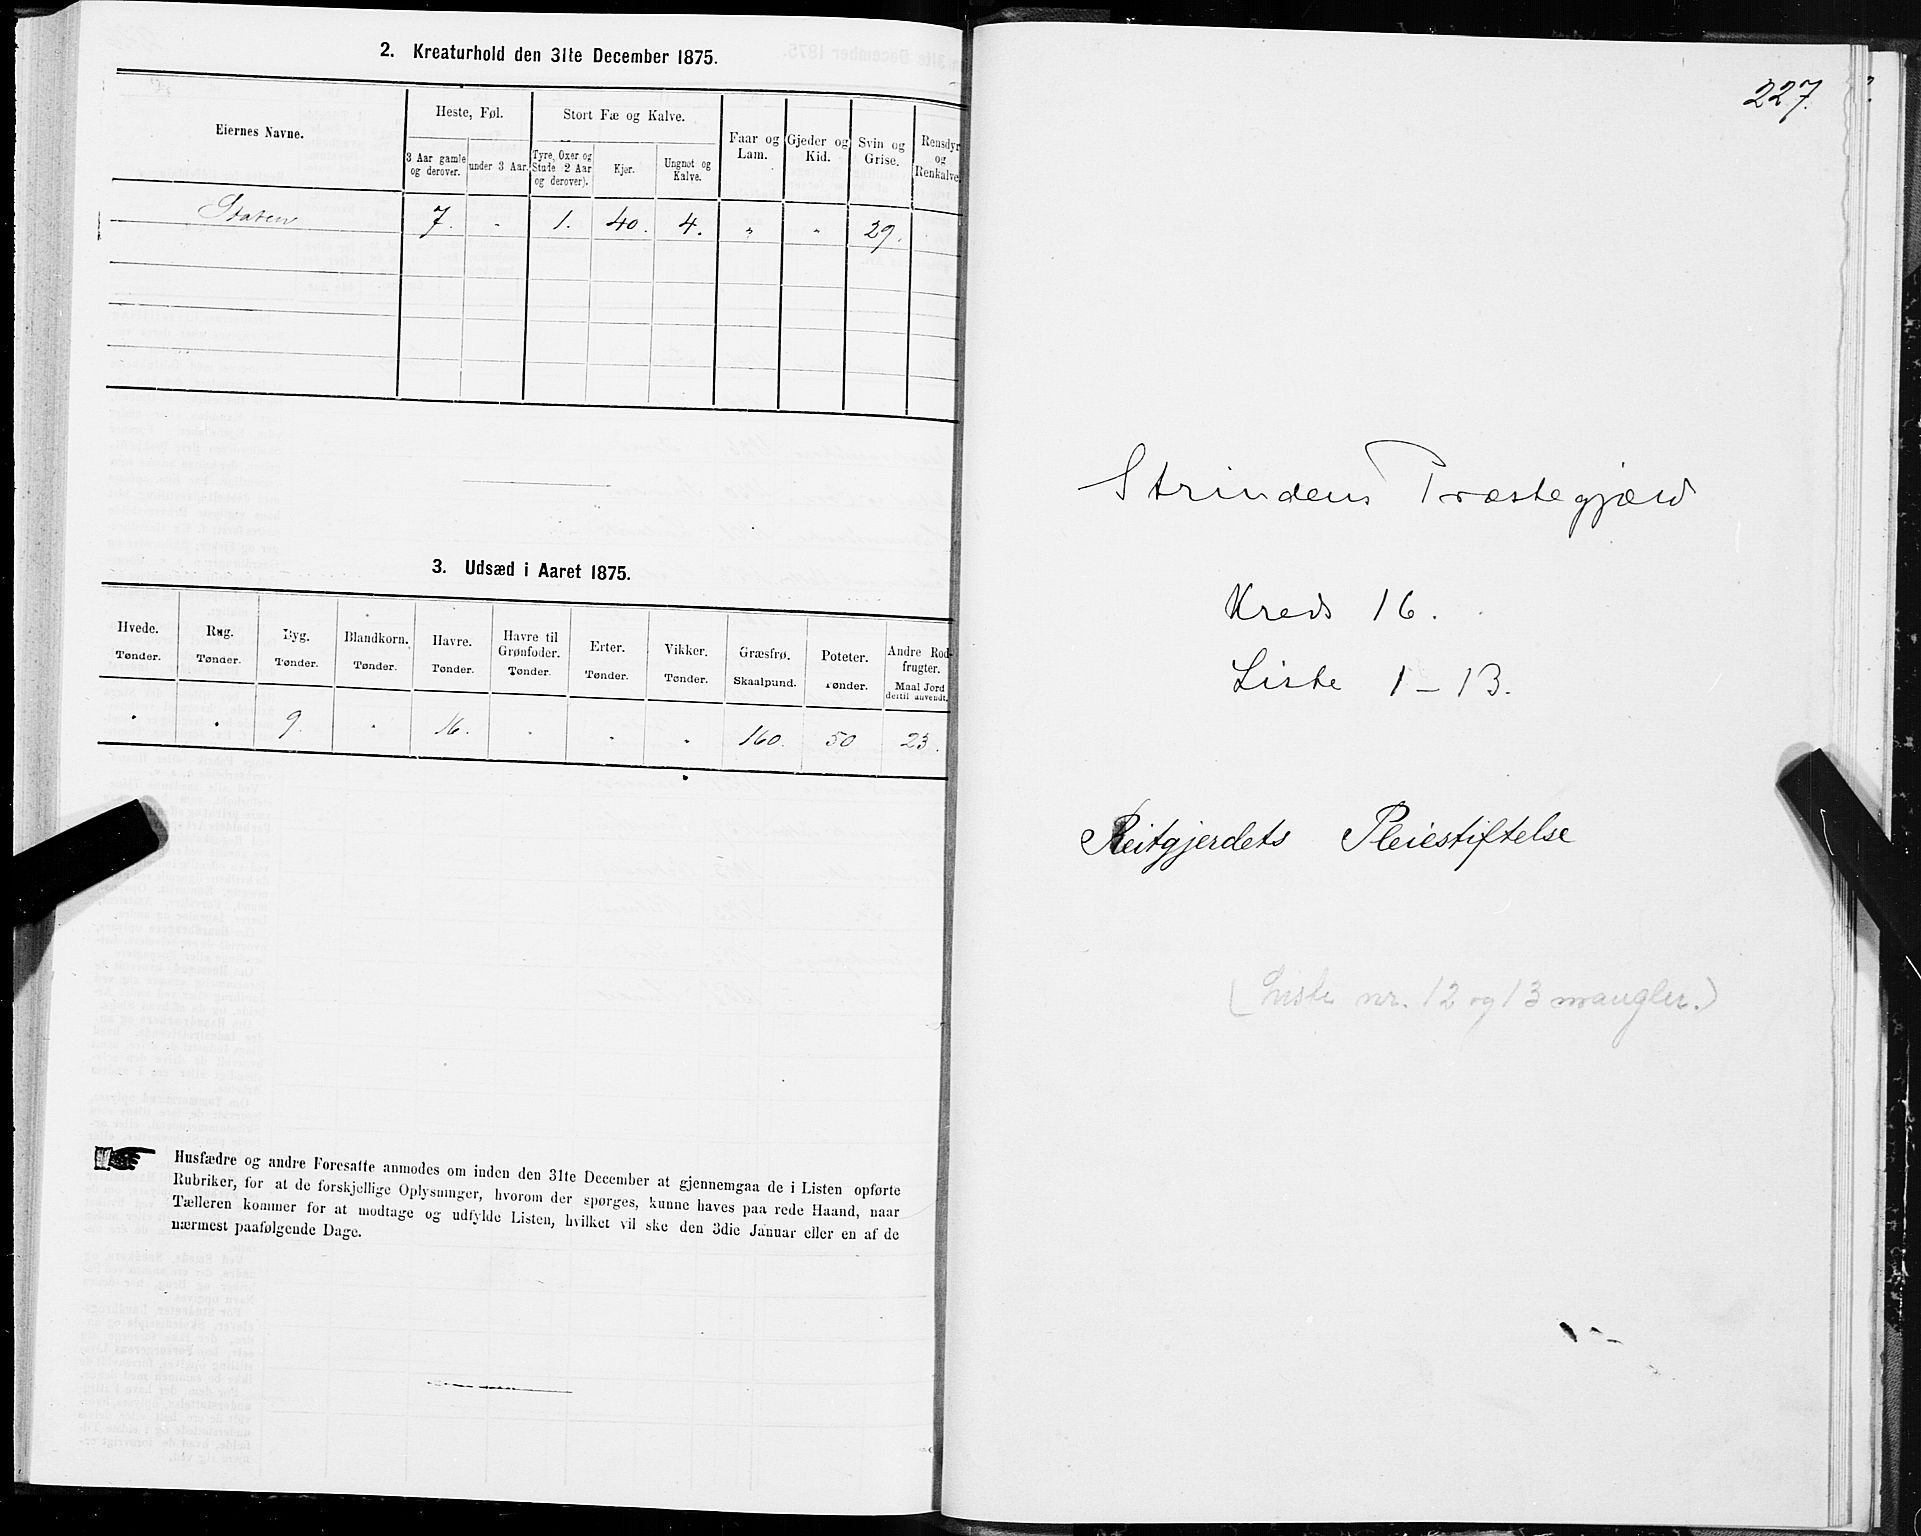 2. Kreaturhold den 31te December 1875.
Eiernes Navne.
Heste, Føl.
Stort Fæ og Kalve.
Faar og Lam.
Gjeder og Kid.
Svin og Grise.
Rensdyr og Renkalve.
3 Aar gamle og derover.
under 3 Aar.
Tyre, Oxer og Stude 2 Aar og derover).
Kjør.
Ungnøt og Kalve.
Staten 7. - 1. 40. 4. " " 29.
3. Udsæd i Aaret 1875.
Hvede. Rug. Byg. Blandkorn. Havre. Havre til Grønfoder. Erter. Vikker. Græsfrø. Poteter. Andre Rodfrugter.
Tønder. Tønder. Tønder. Tønder. Tønder. Tønder. Tønder. Tønder. Skaalpund. Tønder. Maal Jord dertil anvendt.
" " 9. " 16. " " " 160. 50 23.
Husfædre og andre Foresatte anmodes om inden den 31te December at gjennemgaa de i Listen opførte
Rubriker, for at de forskjellige Oplysninger, hvorom der spørges, kunne haves paa rede Haand, naar
Tælleren kommer for at modtage og udfylde Listen, hvilket vil ske den 3die Januar eller en af de
nærmest paafølgende Dage.
227.
Strindens Præstegjæld
Kreds 16.
Liste 1-13.
Reitgjerdets Pleiestiftelse
(Liste nr. 12 og 13 mangler.)